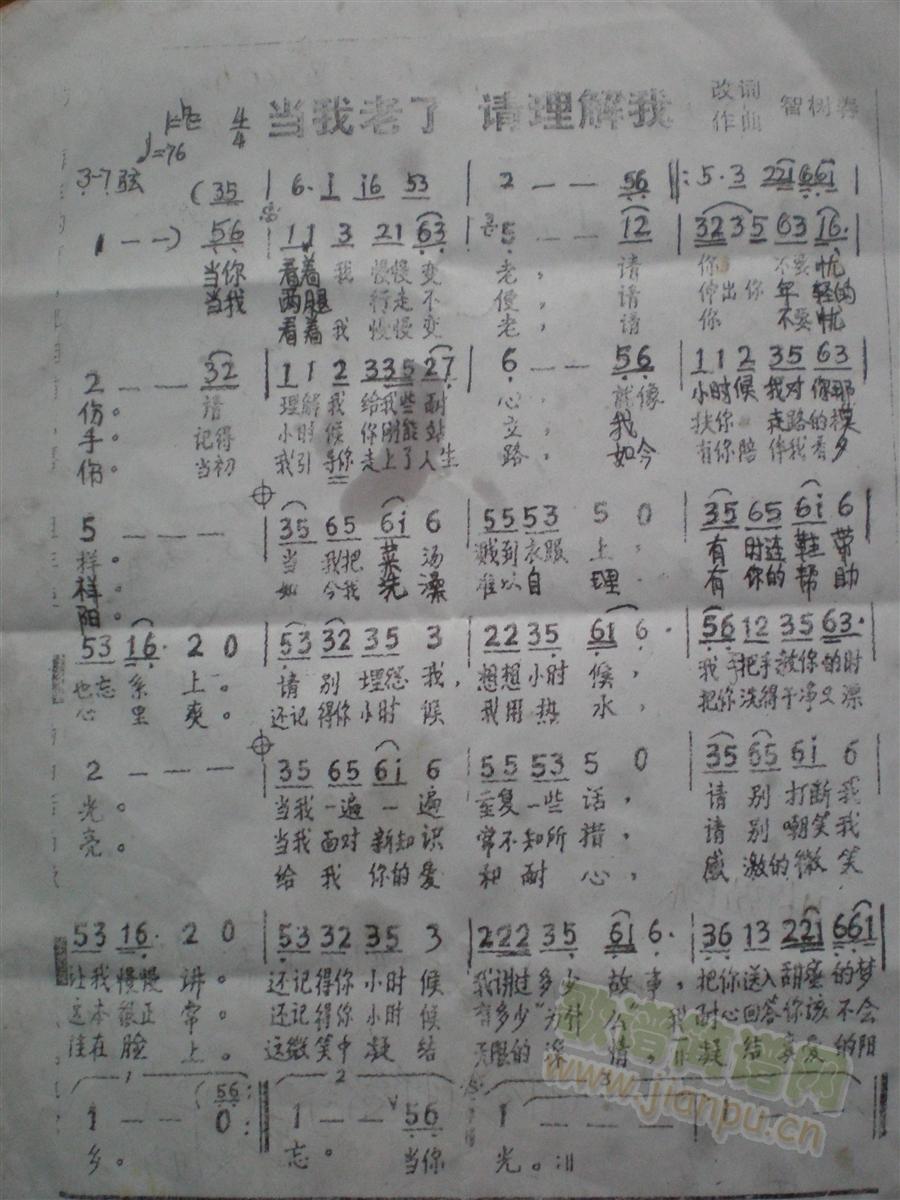 当我老了 请理解我 改词 作曲 智树春
4/4
♩=76
3-7弦 (35 | 6· i i6 53 | 2 — — 56 ‖: 5·3 22i66i |
1 — —) 56 | 11 3 21 63 | 5 — — 12 | 3235 63 16· |
当你 看着 我 慢慢 变 老, 请 你 不要 忧
当我 两腿 行走 不 便, 请 伸出你 年轻的
看着 我 慢慢 变 老, 请 你 不要 忧
2 — — 32 | 11 2 335 27 | 6 — — 56 | 11 2 35 63 |
伤。 请 理解 我 给我些 耐 心, 就像 小时候 我对 你那
手。 记得 小时 候 你刚能 站 立, 我 扶你 走路的模
伤。 当初 我引 导你 走上了人生 路, 如今 有你陪 伴我看夕
5 — — — | 35 65 6i 6 | 55 53 5 0 | 35 65 6i 6 |
样。 当 我把 菜 汤 溅到衣服 上, 有 时连 鞋 带
样。 如 今我 洗 澡 难以自 理, 有 你的 帮 助
阳。
53 16· 2 0 | 53 32 35 3 | 22 35 61 6· | 56 12 35 63· |
也忘 系 上。 请 别 埋怨 我, 想想小时 候, 我手把手教你的时
心 里 爽。 还记得你小时 候 我用热 水, 把你洗得干净又漂
2 — — — | 35 65 6i 6 | 55 53 5 0 | 35 65 6i 6 |
光。 当我 一遍 一 遍 重复一些 话, 请 别 打断 我
亮。 当我 面对 新知 识 常不知所 措, 请 别 嘲笑 我
给 我 你的 爱 和 耐 心, 感 激的微 笑
53 16· 2 0 | 53 32 35 3 | 222 35 61 6· | 36 13 221 661 |
让我慢慢 讲。 还记得你 小时 候 我讲过多少 故 事, 把你送入甜蜜的梦
这本很正 常。 还记得你 小时 候 有多少"为什 么" 我耐心回答你该不会
挂在 脸 上。 这微笑中凝 结 无限的深 情,
1 — — 0 (56 | 1 — — 56 | 1 — — — | 1 — — — ‖
乡。 忘。 当你 光。:‖
歌谱简谱网
www.jianpu.cn